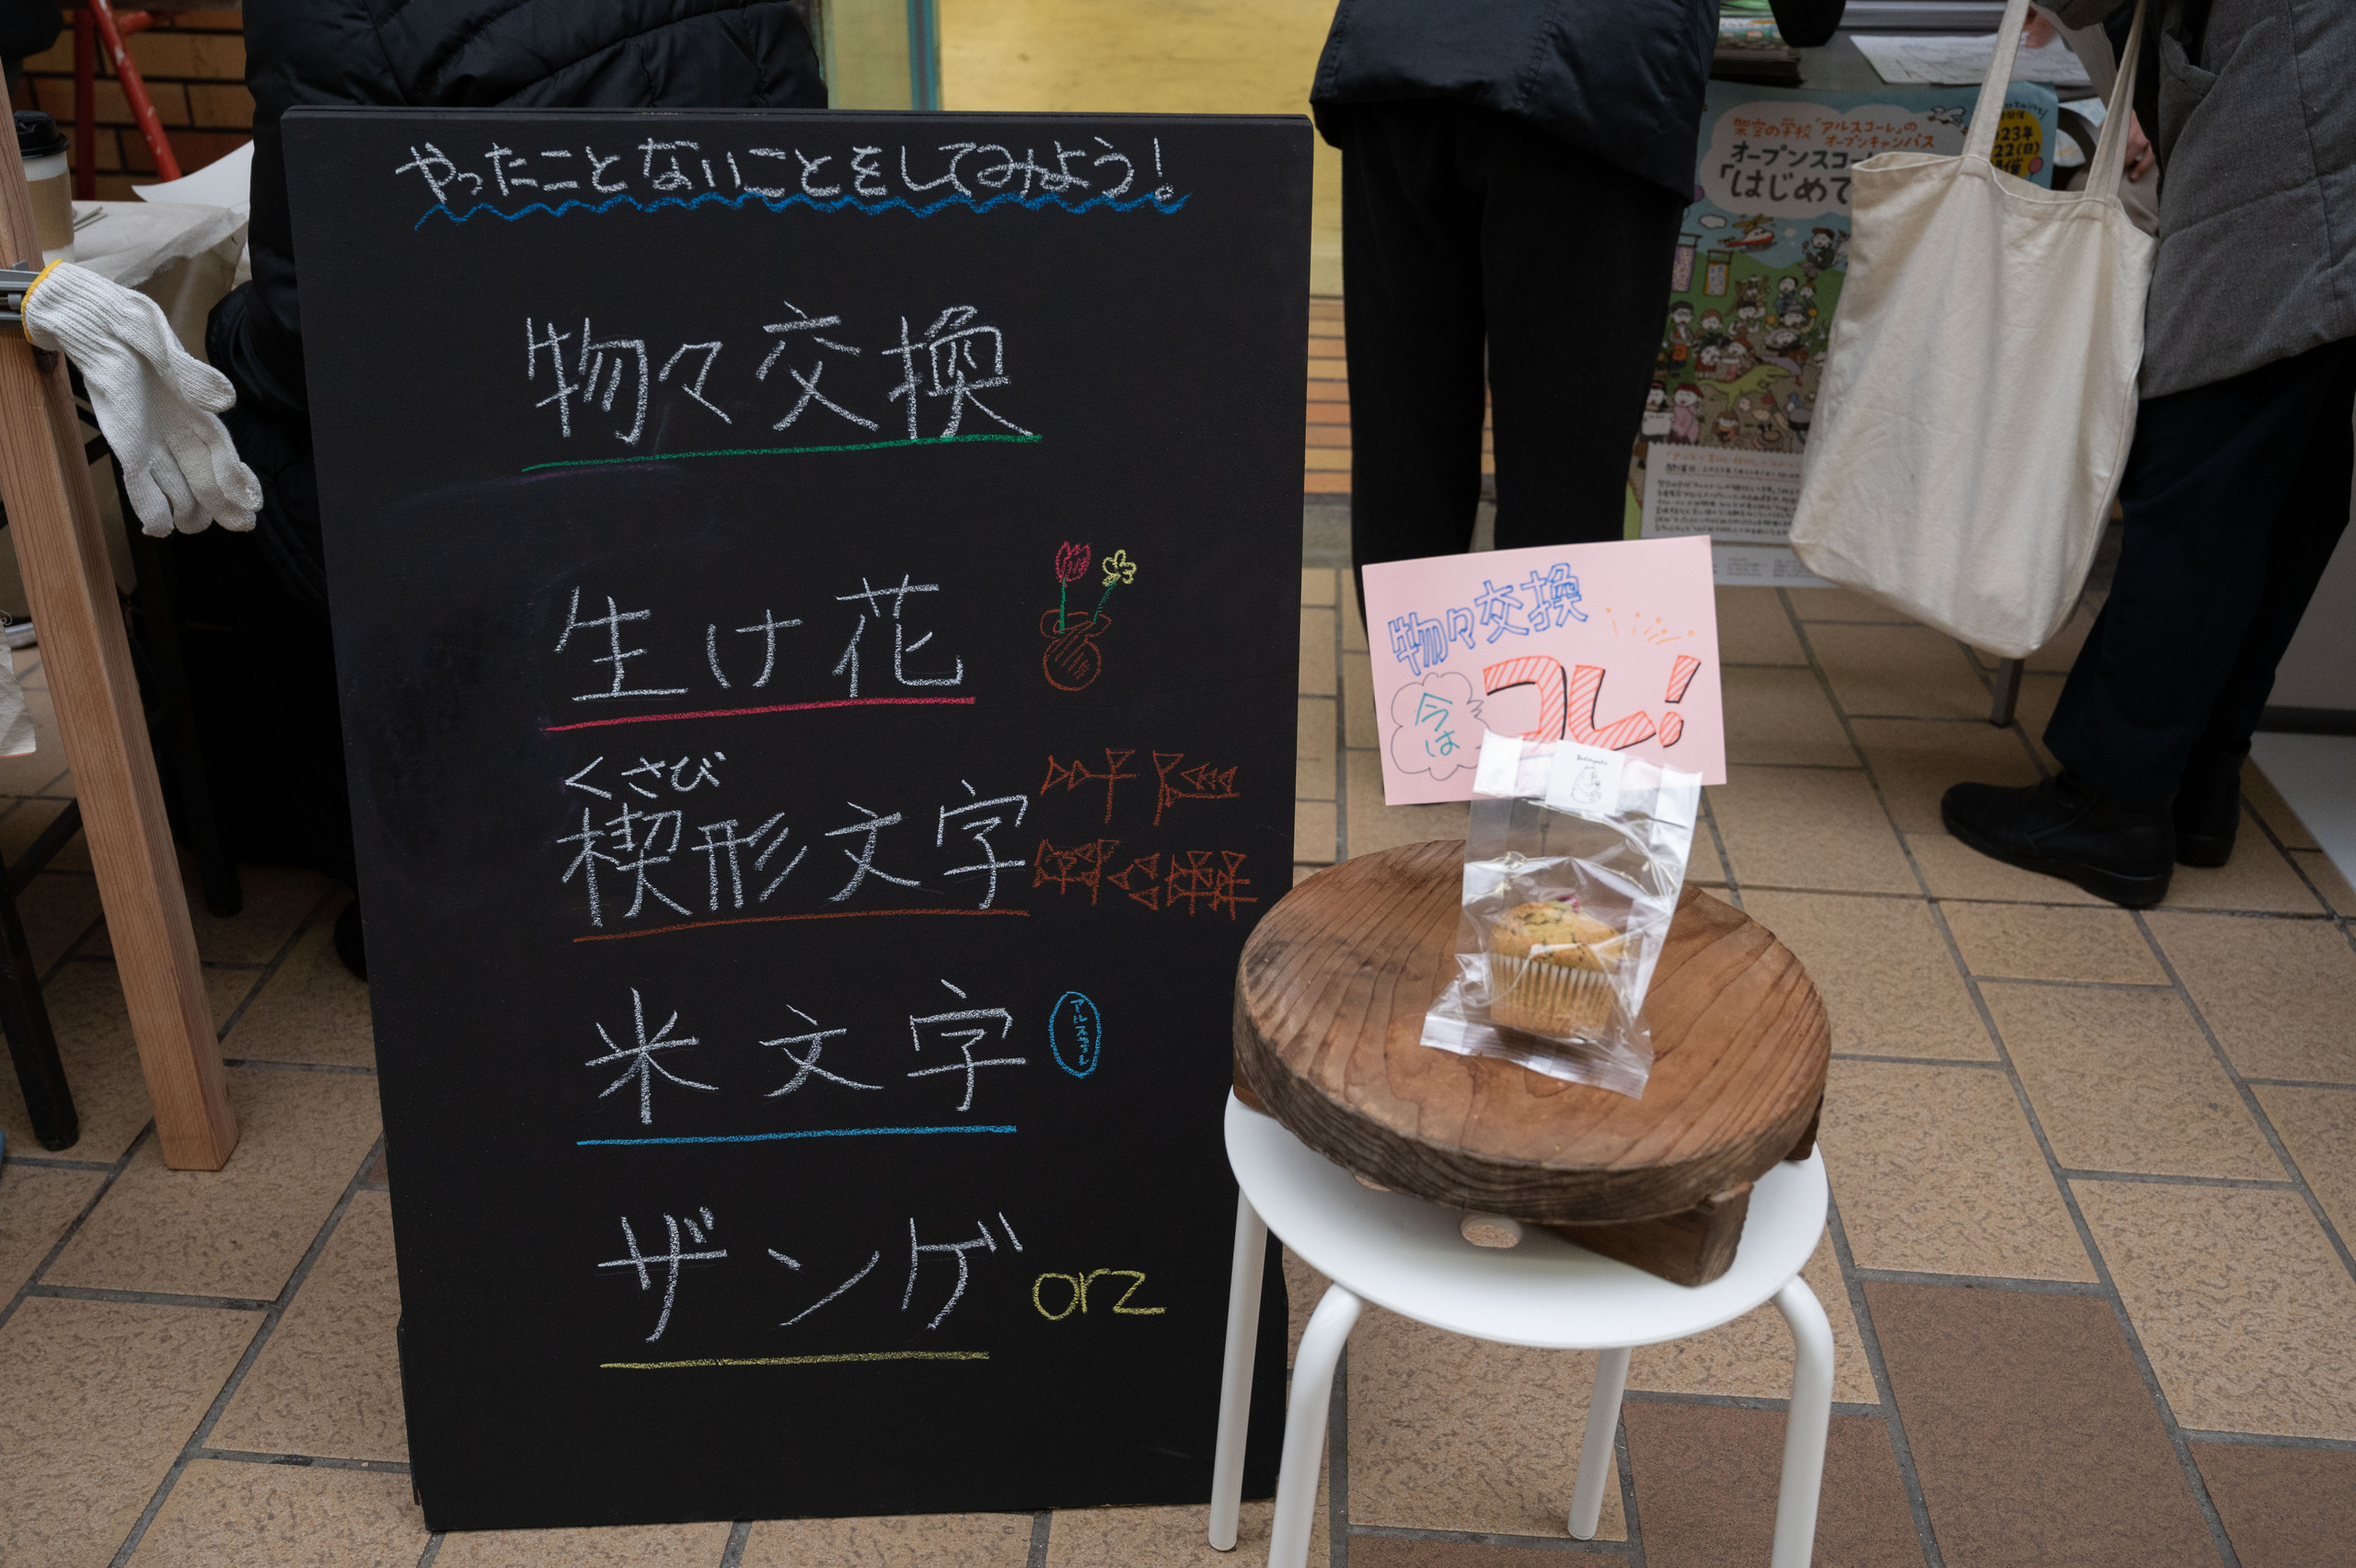 やったことないことをしてみよう!
物々交換
生け花
くさび
楔形文字
米文字
アルスコーレ
ザンゲ orz
物々交換
今は
コレ!
架空の学校「アルスコーレ」の
オープンキャンパス
オープンスコー
「はじめて
23年
22(日)